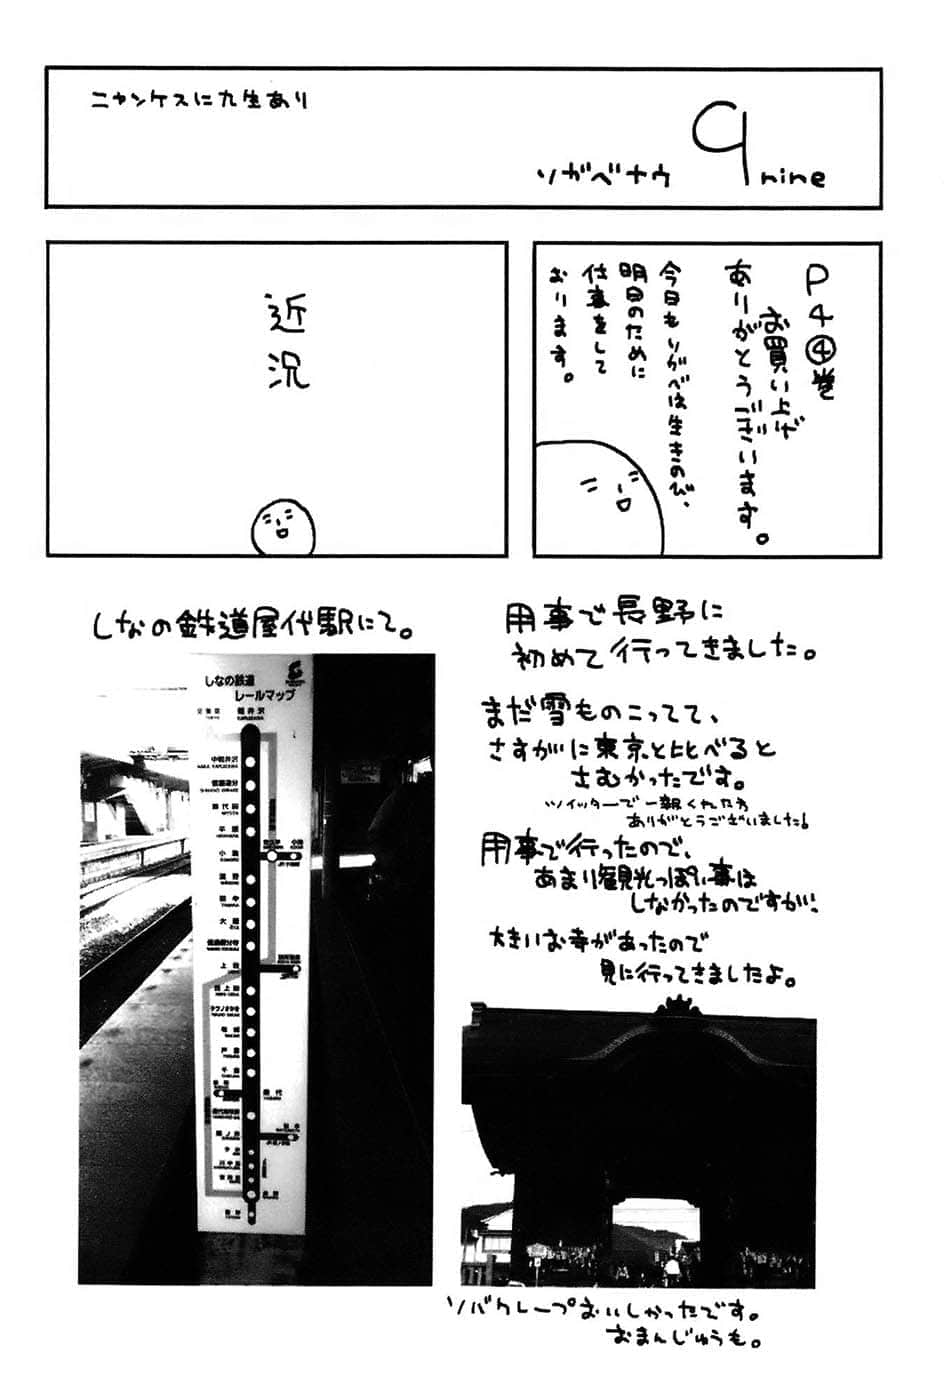 ニャンケスに九生あり
9 nine
ソガベナウ
P4④巻
お買い上げ
ありがとうございます。
今日もソガベは生きのび、
明日のために
仕事をして
おります。
近況
用事で長野に
初めて行ってきました。
まだ雪ものこってて、
さすがに東京と比べると
さむかったです。
ツイッターで一報くれた方
ありがとうございました!
用事で行ったので、
あまり観光っぽい事は
しなかったのですが、
大きいお寺があったので
見に行ってきましたよ。
しなの鉄道屋代駅にて。
しなの鉄道
レールマップ
軽井沢
中軽井沢
信濃追分
御代田
平原
小諸
滋野
田中
大屋
信濃国分寺
上田
西上田
テクノさかき
坂城
戸倉
千曲
屋代
屋代高校前
篠ノ井
今井
川中島
安茂里
長野
ソバクレープおいしかったです。
おまんじゅうも。